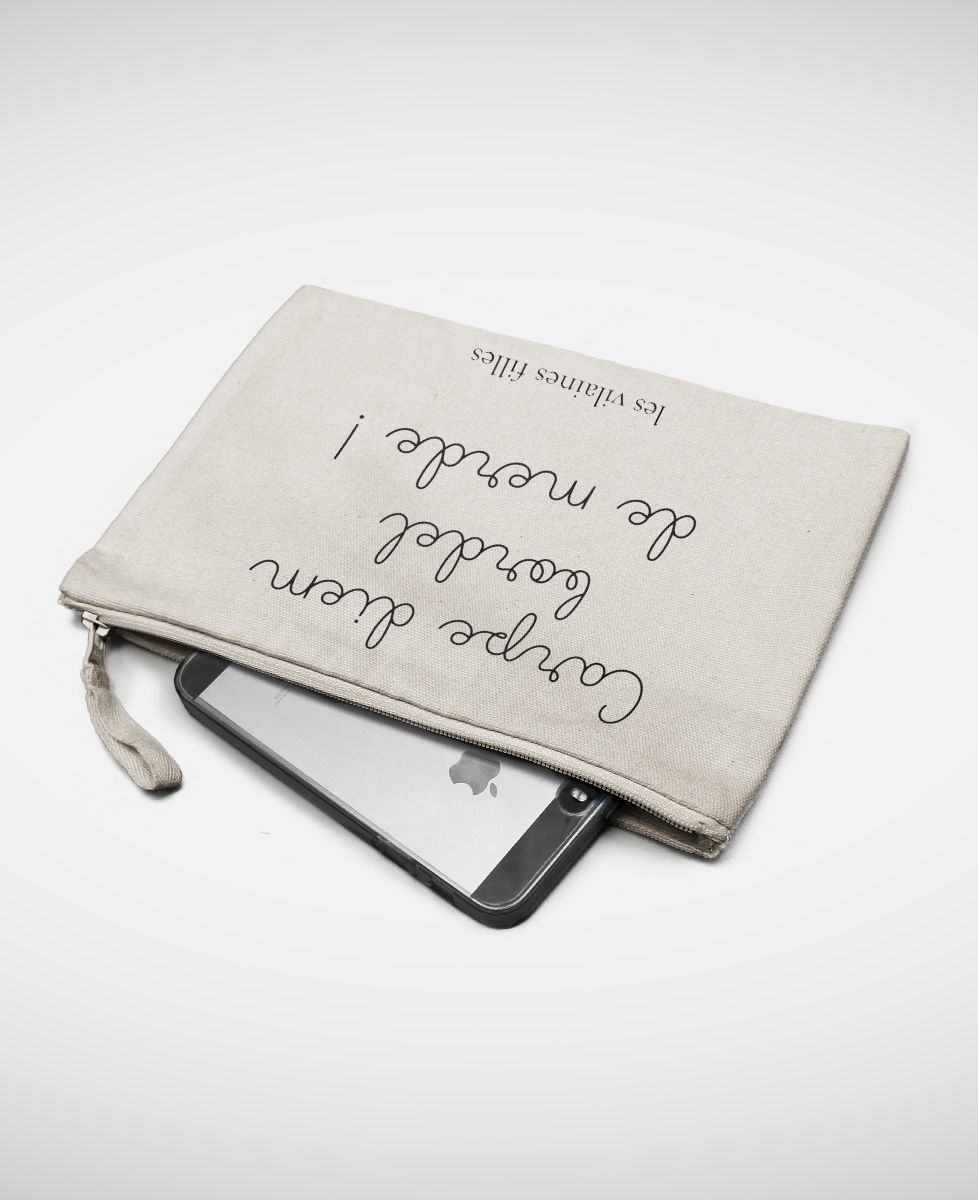 Carpe diem
bordel
de merde !
les vilaines filles